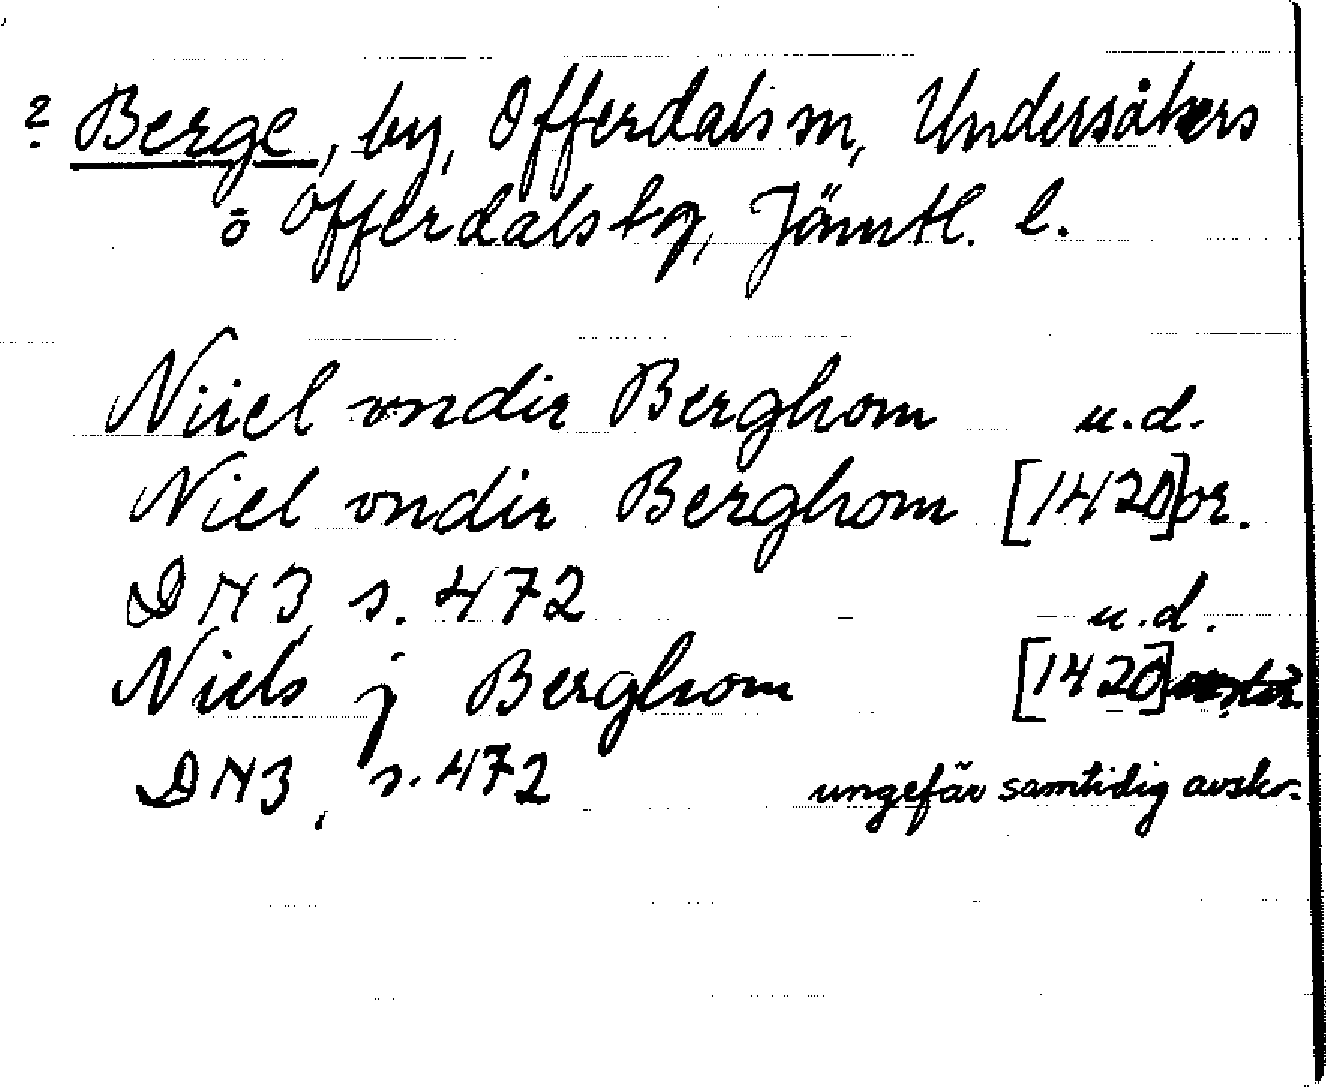 ? Berge, by, Offerdals sn, Undersåkers
o Offerdals tg, Jämtl. l.
Niiel vndir Berghom u.d.
Niel vndir Berghom [1420] or.
DN 3 s. 472
u.d.
Niels j Berghom [1420]
DN 3, s. 472 ungefär samtidig avskr.